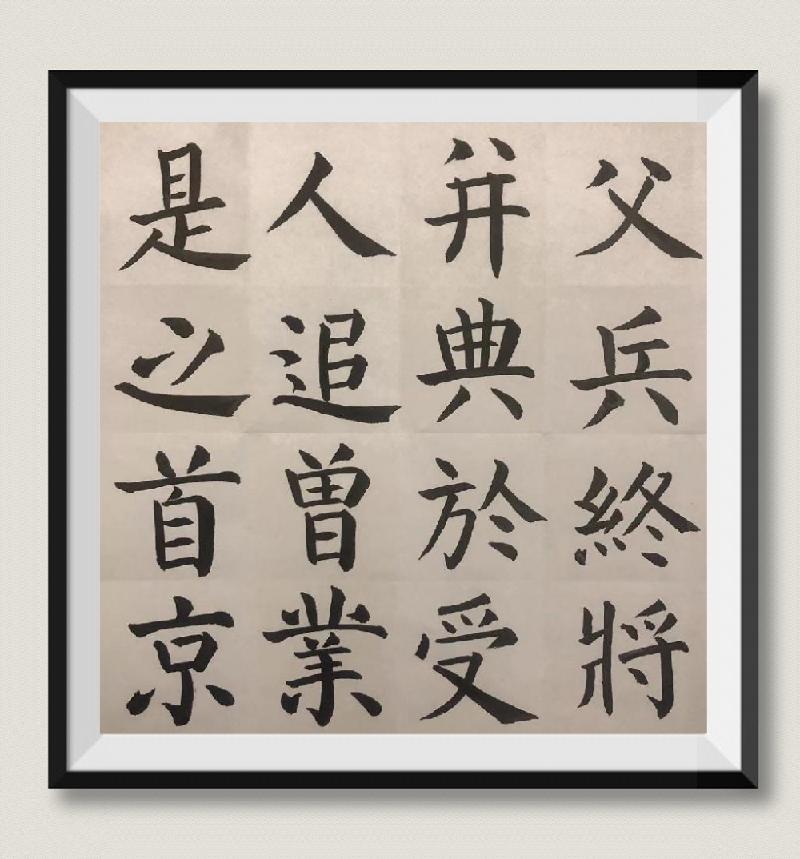 父兵終將
并典於受
人追曾業
是之首京